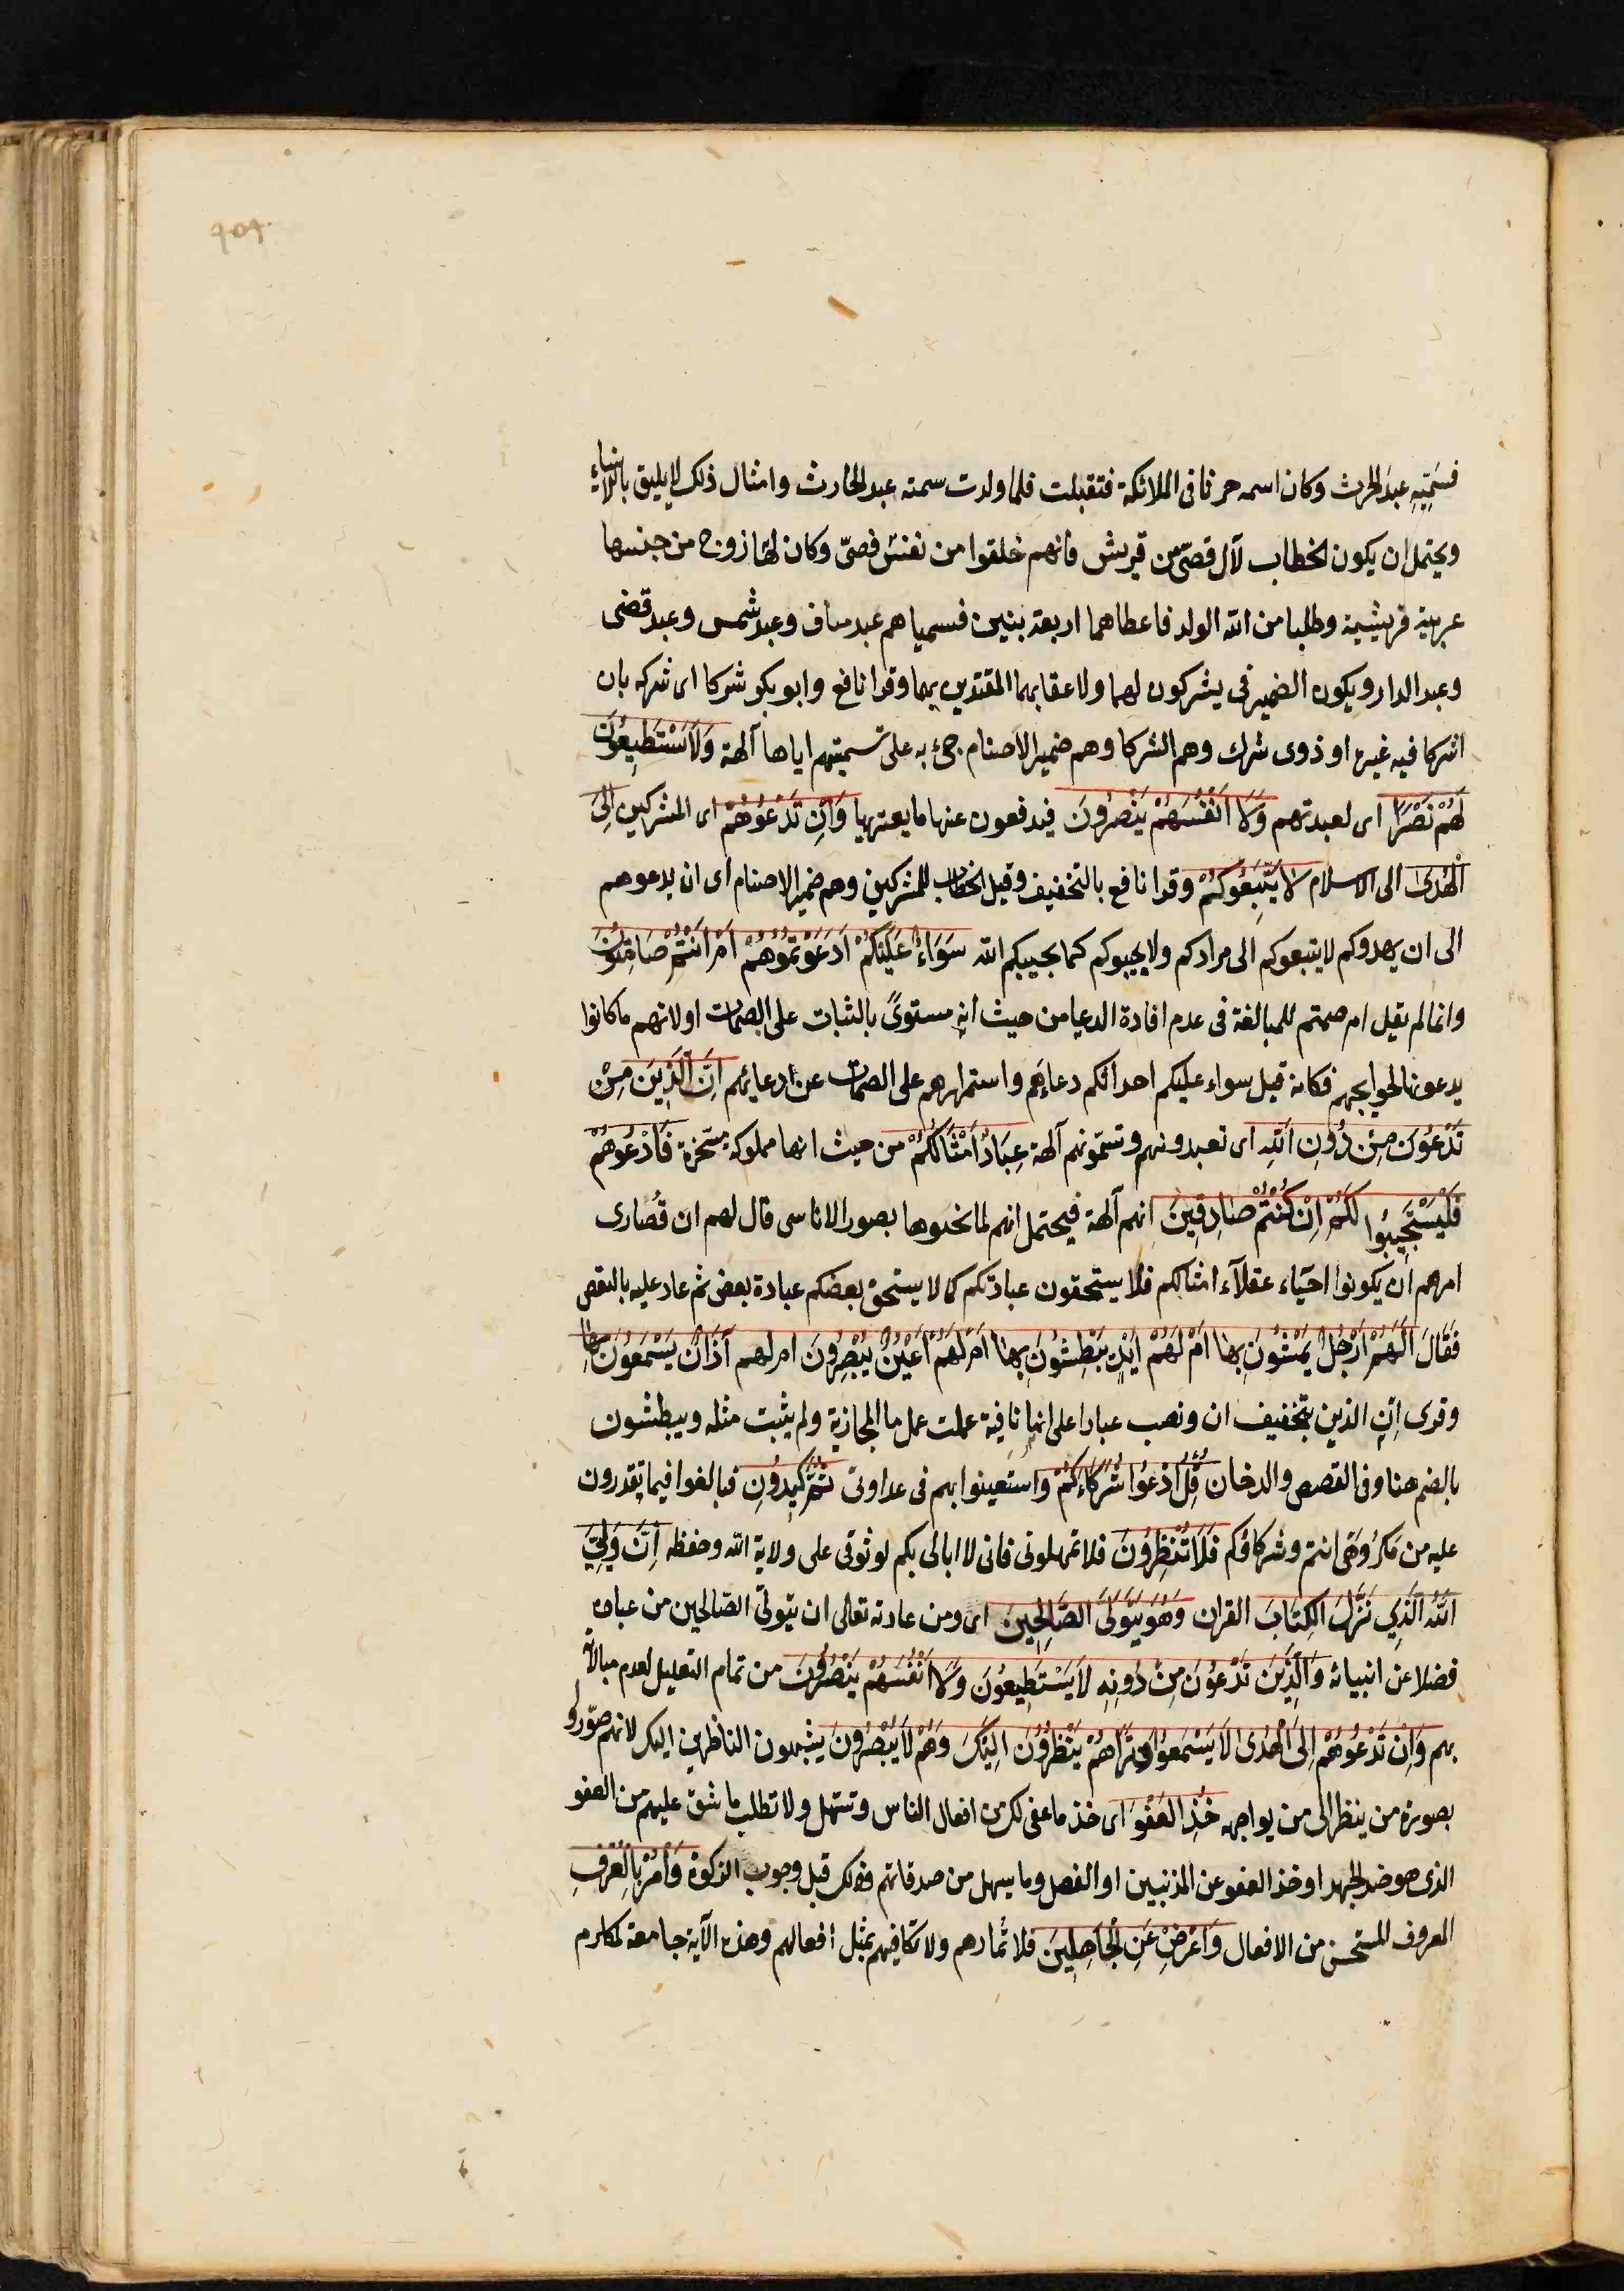 ٩٥٢
فسميه عبد الحرث وكان اسمه حرثا فى الملائكة فتقبلت فلما ولدت سمته عبد الحارث وامثال ذلك لا يليق بالانبياء
ويحتمل ان يكون الخطاب لآل قصىّ من قريش فانهم خلقوا من نفس قصىّ وكان لها زوج من جنسها
عربية قريشية وطلبا من الله الولد فاعطاهما اربعة بنين فسمياهم عبد مناف وعبد شمس وعبد قصى
وعبد الدار ويكون الضمير فى يشركون لهما ولاعقابهما المقتدين بهما وقرا نافع وابو بكر شركا اى شركه بان
اشركا فيه غيره او ذوى شرك وهم الشركا وهم ضمير الاصنام جئ به على تسميتهم اياها آلهة وَلَا يَسْتَطِيعُونَ
لَهُمْ نَصْرًا اى لعبدتهم وَلَا اَنْفُسَهُمْ يَنْصُرُونَ فيدفعون عنها ما يعتريها وَاِنْ تَدْعُوهُمْ اى المشركين اِلَى
الْهُدَى الى الاسلام لَا يَتَّبِعُوكُمْ وقرا نافع بالتخفيف وقيل الخطاب للمشركين وهم ضمير الاصنام اى ان يدعوهم
الى ان يهدوكم لا يتبعوكم الى مرادكم ولا يجيبوكم كما يجيبكم الله سَوَاءٌ عَلَيْكُمْ اَدَعَوْتُمُوهُمْ اَمْ اَنْتُمْ صَامِتُونَ
وانما لم يقل ام صمتم للمبالغة فى عدم افادة الدعا من حيث انه مستوىً بالثبات على الصمات او لانهم ما كانوا
يدعونها لحوايجهم فكانه قيل سواء عليكم احداثكم دعاءهم واستمراركم على الصمات عن ادعايهم اِنَّ الَّذِينَ مِنْ
تَدْعُونَ مِنْ دُونِ اللهِ اى تعبدونهم وتسمّونهم آلهة عِبَادٌ اَمْثَالُكُمْ من حيث انها مملوكة مسخرة فَادْعُوهُمْ
فَلْيَسْتَجِيبُوا لَكُمْ اِنْ كُنْتُمْ صَادِقِينَ انهم آلهة فيحتمل انهم لما نحتوها بصور الاناسى قال لهم ان قُصارى
امرهم ان يكونوا احيَاء عقلآء امثالكم فلا يستحقون عبادتكم كما لا يستحق بعضكم عبادة بعض ثم عاد عليه بالنقض
فَقَالَ اَلَهُمْ اَرْجُلٌ يَمْشُونَ بِهَا اَمْ لَهُمْ اَيْدٍ يَبْطِشُونَ بِهَا اَمْ لَهُمْ اَعْيُنٌ يُبْصِرُونَ ام لهم آذَانٌ يَسْمَعُونَ بِهَا
وقرى اِنِ الذين بتخفيف ان ونصب عبادا على انها نافية عملت عمل ما الحجازية ولم يثبت مثله ويبطشون
بالضم هنا وفى القصص والدخان قُلِ ادْعُوا شُرَكَاءَكُمْ واستعينوا بهم فى عداوتى ثُمَّ كِيدُونِ فبالغوا فيما تقدرون
عليه من مكروهى انتم وشركاؤكم فَلَا تُنْظِرُونَ فلا تمهلونى فانى لا ابالى بكم لوثوقى على ولاية الله وحفظه اِنَّ وَلِيِّيَ
اللهُ الَّذِي نَزَّلَ الْكِتَابَ القران وَهُوَ يَتَوَلَّى الصَّالِحِينَ اى ومن عادته تعالى ان يتولّى الصّالحين من عباده
فضلا عن انبيائه وَالَّذِينَ تَدْعُونَ مِنْ دُونِهِ لَا يَسْتَطِيعُونَ وَلَا اَنْفُسَهُمْ يَنْصُرُونَ من تمام التعليل لعدم مبالاته
بهم وَاِنْ تَدْعُوهُمْ اِلَى الْهُدَى لَا يَسْمَعُوا وَتَرَاهُمْ يَنْظُرُونَ اِلَيْكَ وَهُمْ لَا يُبْصِرُونَ يشبهون الناظرين اليك لانهم صوّروا
بصورة من ينظر الى من يواجهه خُذِ الْعَفْوَ اى خذ ما عفى لك من افعال الناس وتسهل ولا تطلب ما يشق عليهم من العفو
الذى هو ضد الجهد او خذ العفو عن المذنبين او الفضل وما يسهل من صدقاتهم وذلك قبل وجوب الزكوة وَأْمُرْ بِالْعُرْفِ
المعروف المستحسن من الافعال وَاَعْرِضْ عَنِ الْجَاهِلِينَ فلا تمارهم ولا تكافيهم بمثل افعالهم وهذه الآية جامعة لمكارم